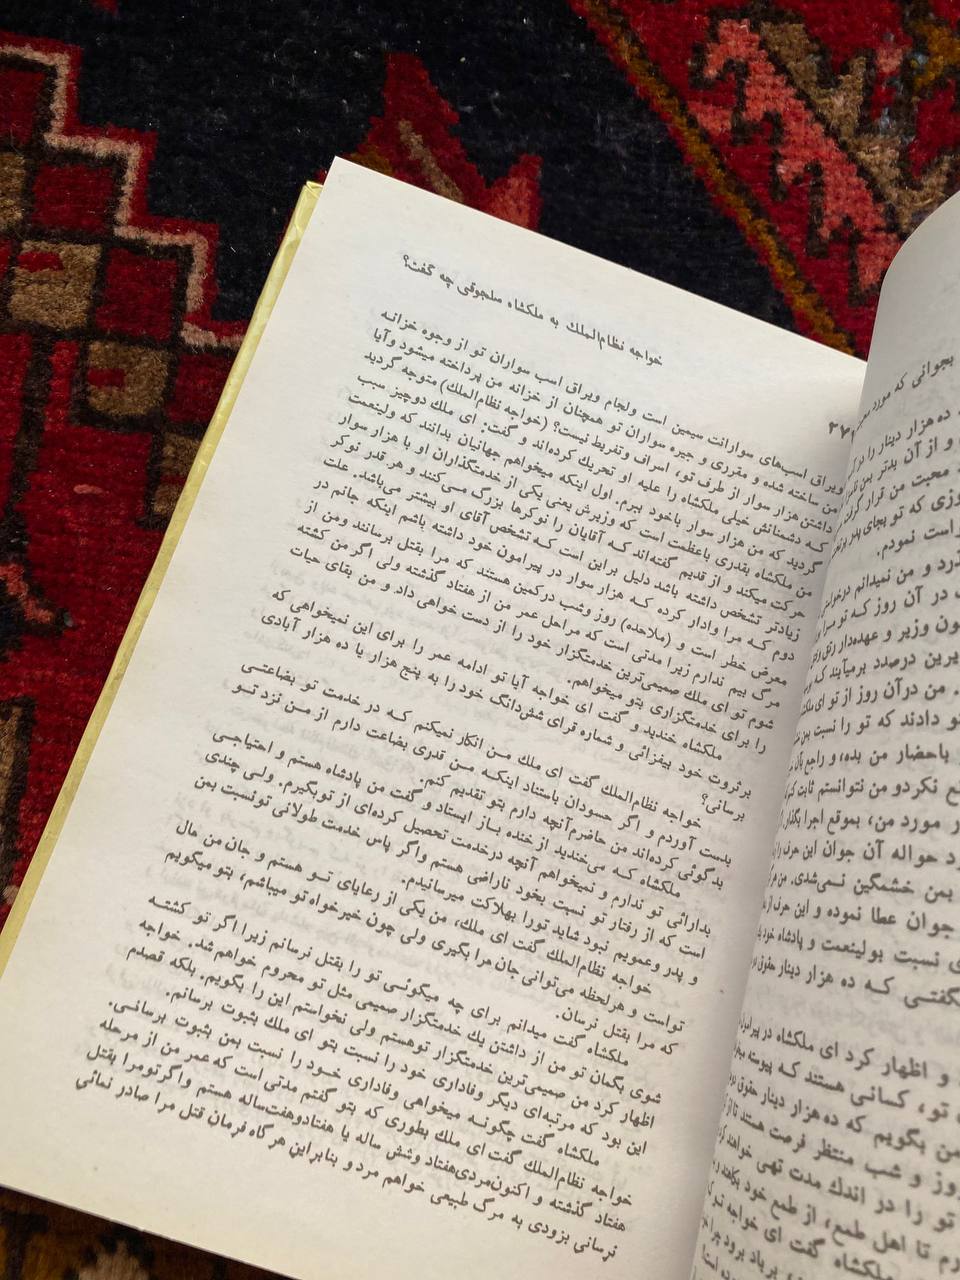 خواجه نظام‌الملك به ملكشاه سلجوقی چه گفت؟
ویراق اسب‌های سوارانت سیمین است ولجام ویراق اسب سواران تو از وجوه خزانه
من ساخته شده و مقرری و جیره سواران تو همچنان از خزانه من پرداخته میشود وآیا
داشتن هزار سوار از طرف تو، اسراف وتفریط نیست؟ (خواجه نظام‌الملك) متوجه گردید
كه دشمنانش خیلی ملكشاه را علیه او تحریك كرده‌اند و گفت: ای ملك دوچیز سبب
گردید كه من هزار سوار باخود ببرم. اول اینكه میخواهم جهانیان بدانند كه ولینعمت
من ملكشاه بقدری باعظمت است كه وزیرش یعنی یكی از خدمتگذاران او با هزار سوار
حركت میكند و از قدیم گفته‌اند كه آقایان را نوكرها بزرگ می‌كنند و هر قدر نوكر
زیادتر تشخص داشته باشد دلیل براین است كه تشخص آقای او بیشتر می‌باشد. علت
دوم كه مرا وادار كرده كه هزار سوار در پیرامون خود داشته باشم اینكه جانم در
معرض خطر است و (ملاحده) روز وشب دركمین هستند كه مرا بقتل برسانند ومن از
مرگ بیم ندارم زیرا مدتی است كه مراحل عمر من از هفتاد گذشته ولی اگر من كشته
شوم تو ای ملك صمیمی‌ترین خدمتگزار خود را از دست خواهی داد و من بقای حیات
را برای خدمتگزاری بتو میخواهم.
ملكشاه خندید و گفت ای خواجه آیا تو ادامه عمر را برای این نمیخواهی كه
برثروت خود بیفزائی و شماره قرای شش‌دانگ خود را به پنج هزار یا ده هزار آبادی
برسانی؟
خواجه نظام‌الملك گفت ای ملك من انكار نمیكنم كه در خدمت تو بضاعتی
بدست آوردم و اگر حسودان باستناد اینكه من قدری بضاعت دارم از من نزد تو
بدگوئی كرده‌اند من حاضرم آنچه دارم بتو تقدیم كنم.
ملكشاه كه می‌خندید از خنده باز ایستاد و گفت من پادشاه هستم و احتیاجی
بدارائی تو ندارم و نمیخواهم آنچه درخدمت تحصیل كرده‌ای از توبگیرم. ولی چندی
است كه از رفتار تو نسبت بخود ناراضی هستم واگر پاس خدمت طولانی تونسبت بمن
و پدر وعمویم نبود شاید تورا بهلاكت میرسانیدم.
خواجه نظام‌الملك گفت ای ملك، من یكی از رعایای تو هستم و جان من مال
تواست و هرلحظه می‌توانی جان مرا بگیری ولی چون خیرخواه تو میباشم، بتو میگویم
كه مرا بقتل نرسان.
ملكشاه گفت میدانم برای چه میگوئی تو را بقتل نرسانم زیرا اگر تو كشته
شوی بگمان تو من از داشتن یك خدمتگزار صمیمی مثل تو محروم خواهم شد. خواجه
اظهار كرد من صمیمی‌ترین خدمتگزار توهستم ولی نخواستم این را بگویم. بلكه قصدم
این بود كه مرتبه‌ای دیگر وفاداری خود را نسبت بتو ای ملك بثبوت برسانم.
ملكشاه گفت چگونه میخواهی وفاداری خود را نسبت بمن بثبوت برسانی.
خواجه نظام‌الملك گفت ای ملك بطوری كه بتو گفتم مدتی است كه عمر من از مرحله
هفتاد گذشته و اكنون‌مردی‌هفتاد وشش ساله یا هفتادوهفت‌ساله هستم واگرتومرا بقتل
نرسانی بزودی به مرگ طبیعی خواهم مرد و بنابراین هر گاه فرمان قتل مرا صادر نمائی
بجوانی كه مورد
ده هزار دینار را در
و از آن بدتر بمن
محبت من قرار گرفت
روزی كه تو بجای پدر
است نمودم.
و من نمیدانم
در آن روز كه تو مرا
وزیر و عهده‌دار رتق
درصدد برمیآیند كه
من درآن روز از تو ای ملكشاه
دادند كه تو را نسبت بمن
باحضار من بده، و راجع
نكردو من نتوانستم ثابت كنم
مورد من، بموقع اجرا بگذار
حواله آن جوان این حرف را
بمن خشمگین نمی‌شدی.
جوان عطا نموده و این حرف از
نسبت بولینعمت و پادشاه خود
كه ده هزار دینار حقوق
و اظهار كرد ای ملكشاه در پیرامون
تو، كسانی هستند كه پیوسته
من بگویم كه ده هزار دینار حقوق
روز و شب منتظر فرصت هستند تا از
تو را در اندك مدت تهی خواهند
تا اهل طمع، از طمع خود
ملكشاه گفت ای خواجه
برباد برود چرا